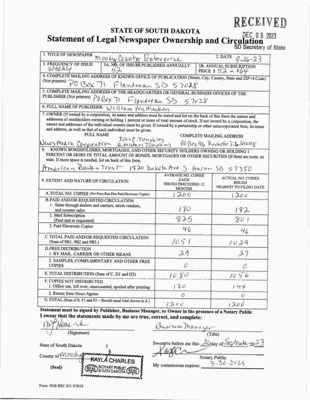 RECEIVED
DEC 08 2023
SD Secretary of State
STATE OF SOUTH DAKOTA
Statement of Legal Newspaper Ownership and Circulation
1. TITLE OF NEWSPAPER Moody County Enterprise
2. DATE 9-26-23
3. FREQUENCY OF ISSUE Weekly
3A. NO. OF ISSUES PUBLISHED ANNUALLY 52
3B. ANNUAL SUBSCRIPTION PRICE $
4. COMPLETE MAILING ADDRESS OF KNOWN OFFICE OF PUBLICATION (Street, City, County, State and ZIP+4 Code) (Not printers)
PO Box 71 Flandreau SD 57028
5. COMPLETE MAILING ADDRESS OF THE HEADQUARTERS OR GENERAL BUSINESS OFFICES OF THE PUBLISHER (Not printer)
PO Box 71 Flandreau SD 57028
6. FULL NAME OF PUBLISHER: William McMacken
7. OWNER (If owned by a corporation, its name and address must be stated and also on the back of this form the names and addresses of stockholders owning or holding 1 percent or more of total amount of stock. If not owned by a corporation, the names and addresses of the individual owners must be given. If owned by a partnership or other unincorporated firm, its name and address, as well as that of each individual must be given.
FULL NAME
COMPLETE MAILING ADDRESS
8. KNOWN BONDHOLDERS, MORTGAGES, AND OTHER SECURITY HOLDERS OWNING OR HOLDING 1 PERCENT OR MORE OF TOTAL AMOUNT OF BONDS, MORTGAGES OR OTHER SECURITIES (If there are none, so state. If more space is needed, list on back of this form.
American Bank & Trust 1820 Dakota Ave S Huron SD 57350
9. EXTENT AND NATURE OF CIRCULATION
AVERAGE NO. COPIES EACH ISSUED PRECEDING 12 MONTHS
ACTUAL NO. COPIES ISSUED NEAREST TO FILING DATE
A. TOTAL NO. COPIES (Net Press Run Plus Paid Electronic Copies) 1200 1200
B. PAID AND/OR REQUESTED CIRCULATION
1. Sales through dealers and carriers, street vendors, and counter sales. 180 182
2. Mail Subscription (Paid and or requested) 825 801
3. Paid Electronic Copies 46 46
C. TOTAL PAID AND/OR REQUESTED CIRCULATION (Sum of 9B1, 9B2 and 9B3.) 1051 1029
D. FREE DISTRIBUTION
1. BY MAIL, CARRIER OR OTHER MEANS 29 27
2. SAMPLES, COMPLIMENTARY AND OTHER FREE COPIES 0 0
E. TOTAL DISTRIBUTION (Sum of C, D1 and D2) 1080 1056
F. COPIES NOT DISTRIBUTED
1. Office use, left over, unaccounted, spoiled after printing 120 144
2. Return from News Agents 0 0
G. TOTAL (Sum of E, F1 and F2 - Should equal total shown in A) 1200 1200
Statement must be signed by Publisher, Business Manager, or Owner in the presence of a Notary Public
I swear that the statements made by me are true, correct, and complete:
(Signature)
Business Manager
(Title)
State of South Dakota
County of Moody
Sworn to before me this 26 day of September 23
Notary Public
My commission expires: 9-30-2024
KAYLA CHARLES
NOTARY PUBLIC
SOUTH DAKOTA
SEAL